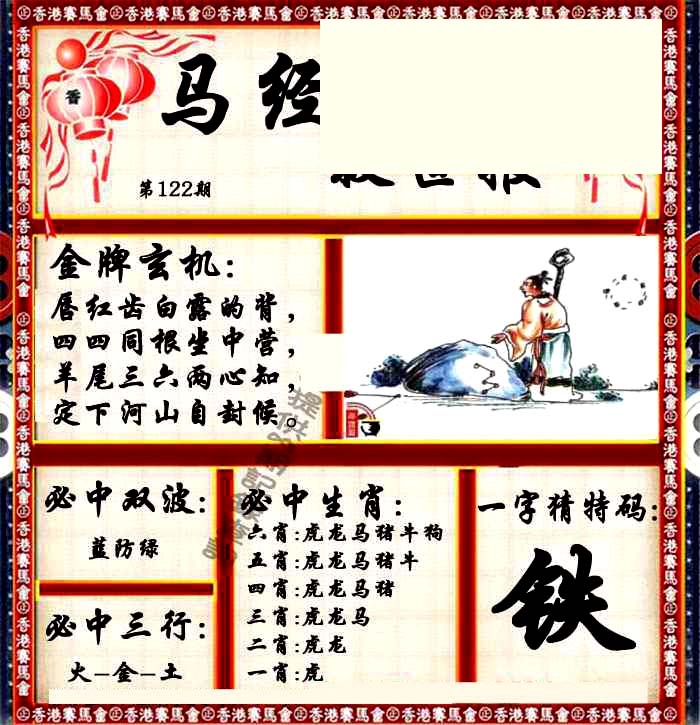 香港賽馬會㊣香港賽馬會㊣香港賽馬會㊣香港賽馬會㊣香港賽馬會
马经
第122期
金牌玄机:
唇红齿白露的背，
四四同根坐中营，
羊尾三六两心知，
定下河山自封候。
必中双波:
蓝防绿
必中三行:
火-金-土
必中生肖:
六肖:虎龙马猪牛狗
五肖:虎龙马猪牛
四肖:虎龙马猪
三肖:虎龙马
二肖:虎龙
一肖:虎
一字猜特码:
铁
香港賽馬會㊣香港賽馬會㊣香港賽馬會㊣香港賽馬會㊣香港賽馬會